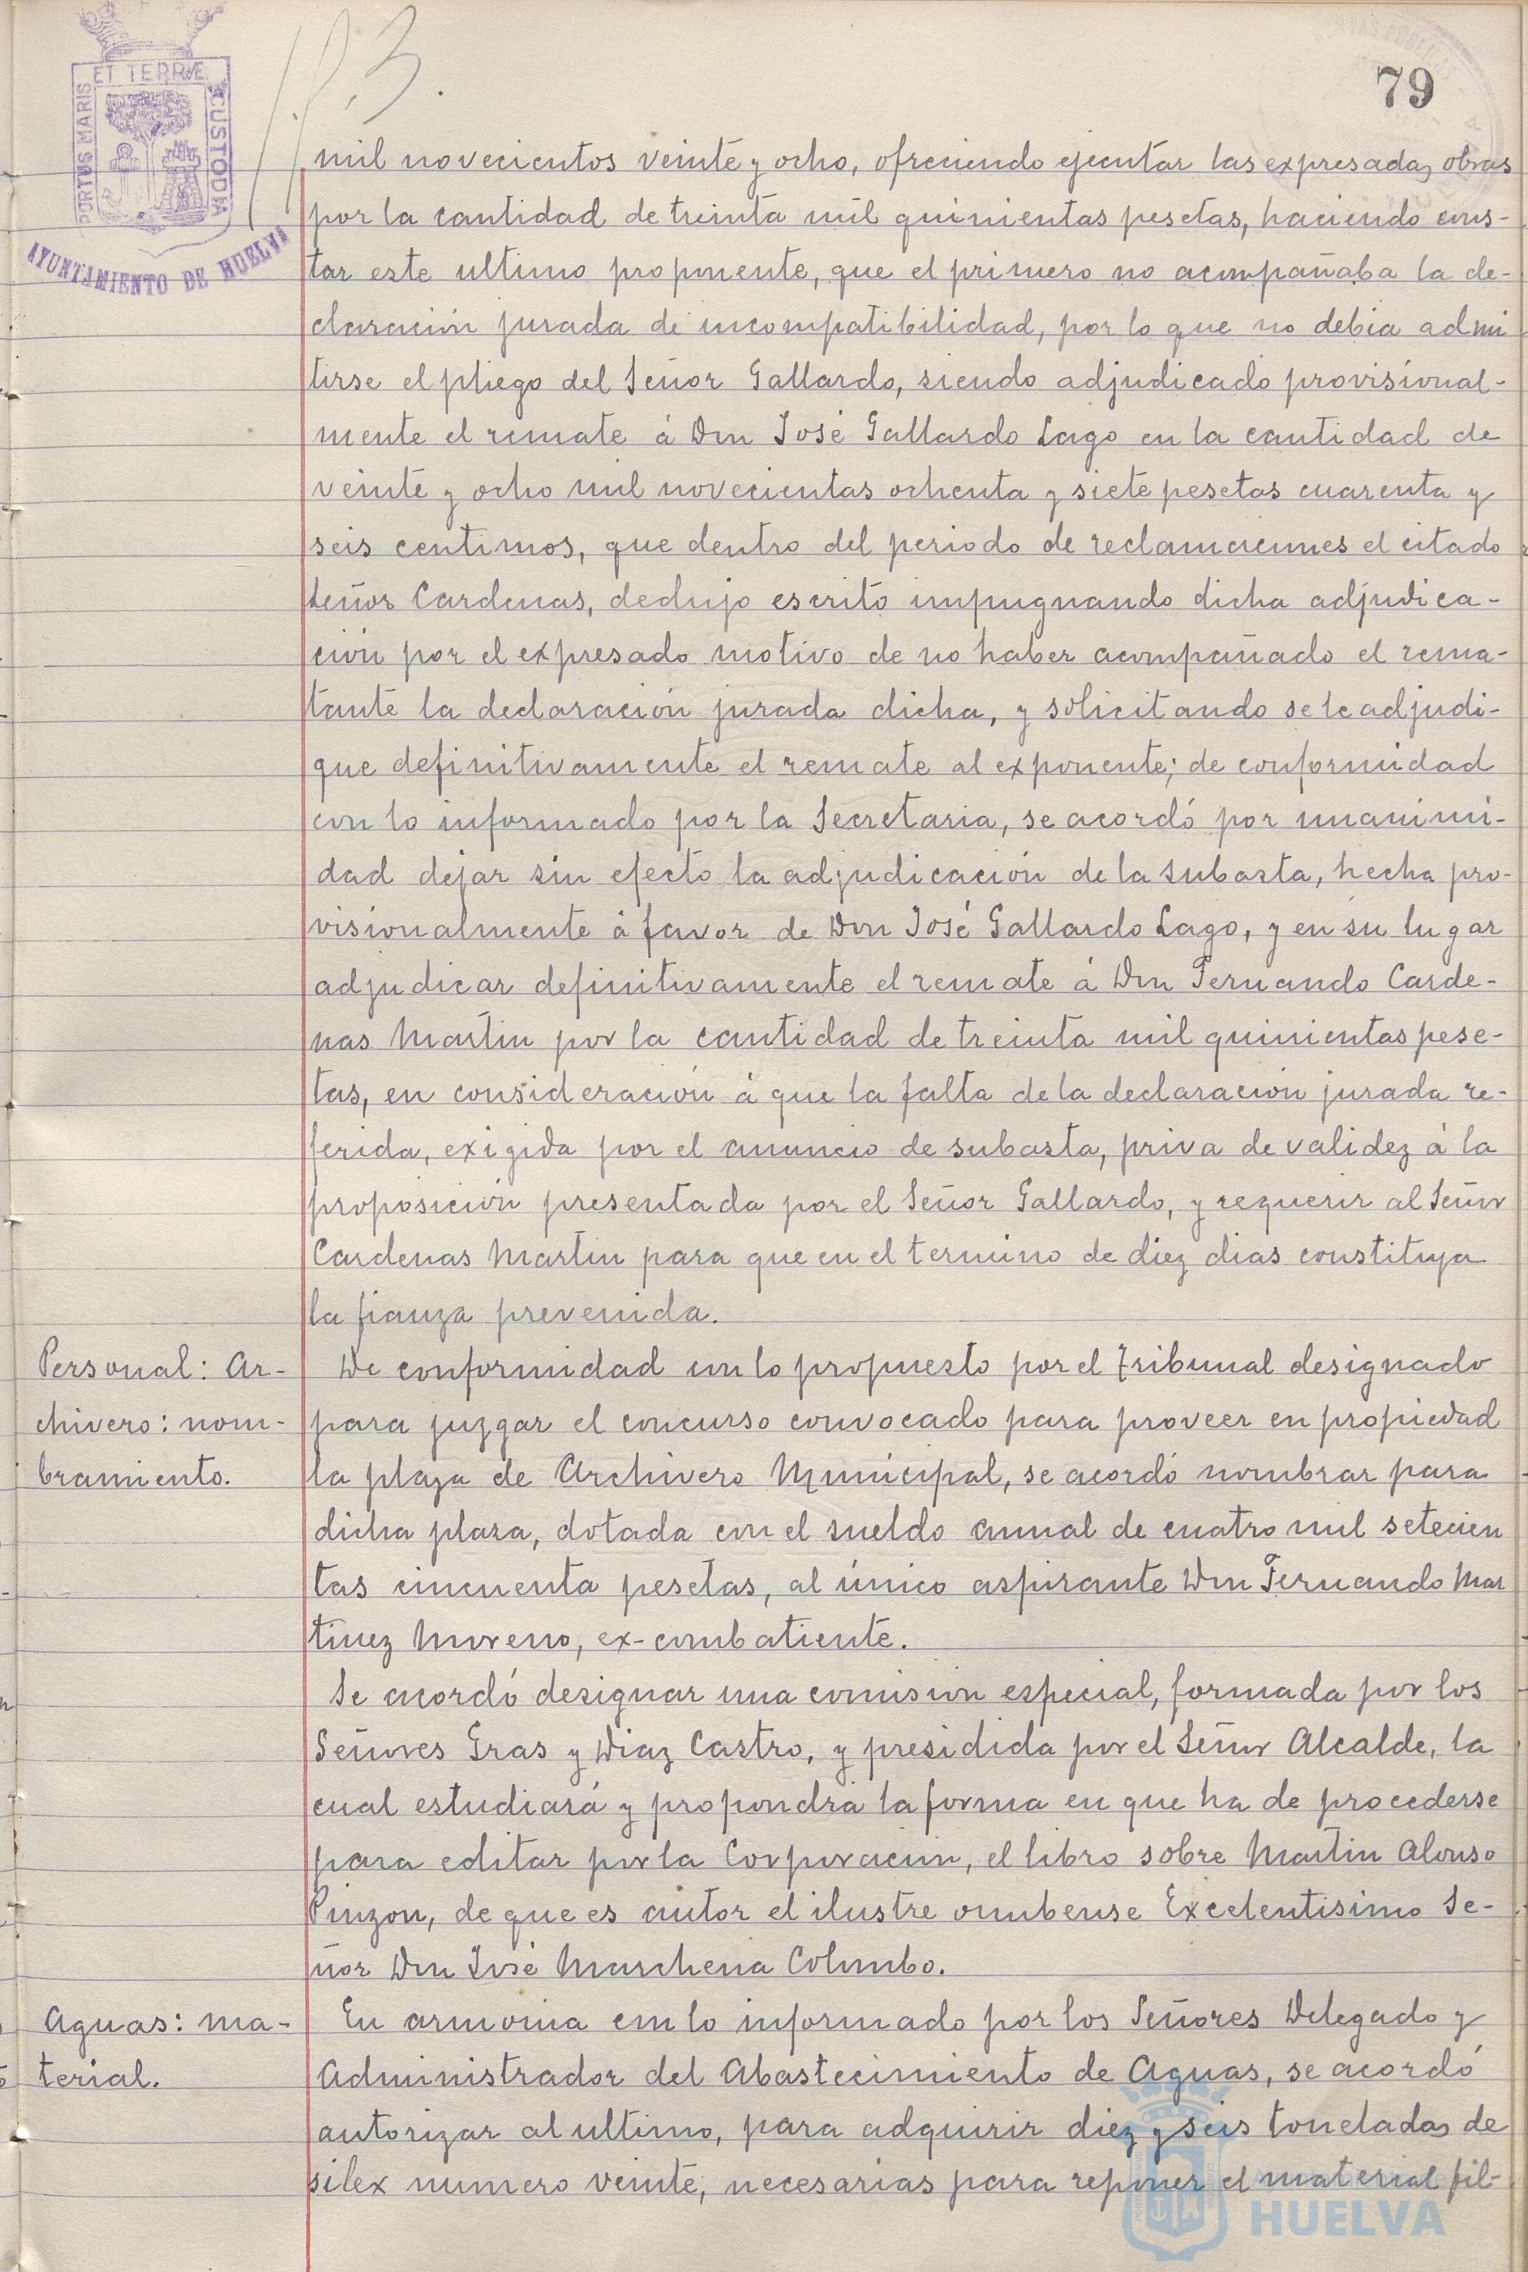 ET TERRÆ
PORTUS MARIS
CUSTODIA
AYUNTAMIENTO DE HUELVA
79
mil novecientos veinte y ocho, ofreciendo ejecutar las expresadas obras
por la cantidad de treinta mil quinientas pesetas, haciendo cons-
tar este ultimo proponente, que el primero no acompañaba la de-
claración jurada de incompatibilidad, por lo que no debia admi
tirse el pliego del Señor Gallardo, siendo adjudicado provisional-
mente el remate á Don José Gallardo Lago en la cantidad de
veinte y ocho mil novecientas ochenta y siete pesetas cuarenta y
seis centimos, que dentro del periodo de reclamaciones el citado
Señor Cardenas, dedujo escrito impugnando dicha adjudica-
ción por el expresado motivo de no haber acompañado el rema-
tante la declaración jurada dicha, y solicitando se le adjudi-
que definitivamente el remate al exponente; de conformidad
con lo informado por la Secretaria, se acordó por unanimi-
dad dejar sin efecto la adjudicación de la subasta, hecha pro-
visionalmente á favor de Don José Gallardo Lago, y en su lugar
adjudicar definitivamente el remate á Don Fernando Carde-
nas Martin por la cantidad de treinta mil quinientas pese-
tas, en consideración á que la falta de la declaración jurada re-
ferida, exigida por el anuncio de subasta, priva de validez á la
proposición presentada por el Señor Gallardo, y requerir al Señor
Cardenas Martin para que en el termino de diez dias constituya
la fianza prevenida.
Personal: Ar-
chivero: nom-
bramiento.
De conformidad con lo propuesto por el tribunal designado
para juzgar el concurso convocado para proveer en propiedad
la plaza de Archivero Municipal, se acordó nombrar para
dicha plaza, dotada con el sueldo anual de cuatro mil setecien
tas cincuenta pesetas, al único aspirante Don Fernando Mar
tinez Moreno, ex-combatiente.
Se acordó designar una comision especial, formada por los
Señores Gras y Diaz Castro, y presidida por el Señor Alcalde, la
cual estudiará y propondrá la forma en que ha de procederse
para editar por la Corporación, el libro sobre Martin Alonso
Pinzon, de que es autor el ilustre onubense Excelentisimo Se-
ñor Don José Marchena Colombo.
Aguas: ma-
terial.
En armonia con lo informado por los Señores Delegado y
Administrador del Abastecimiento de Aguas, se acordó
autorizar al ultimo, para adquirir diez y seis toneladas de
silex numero veinte, necesarias para reponer el material fil-
HUELVA